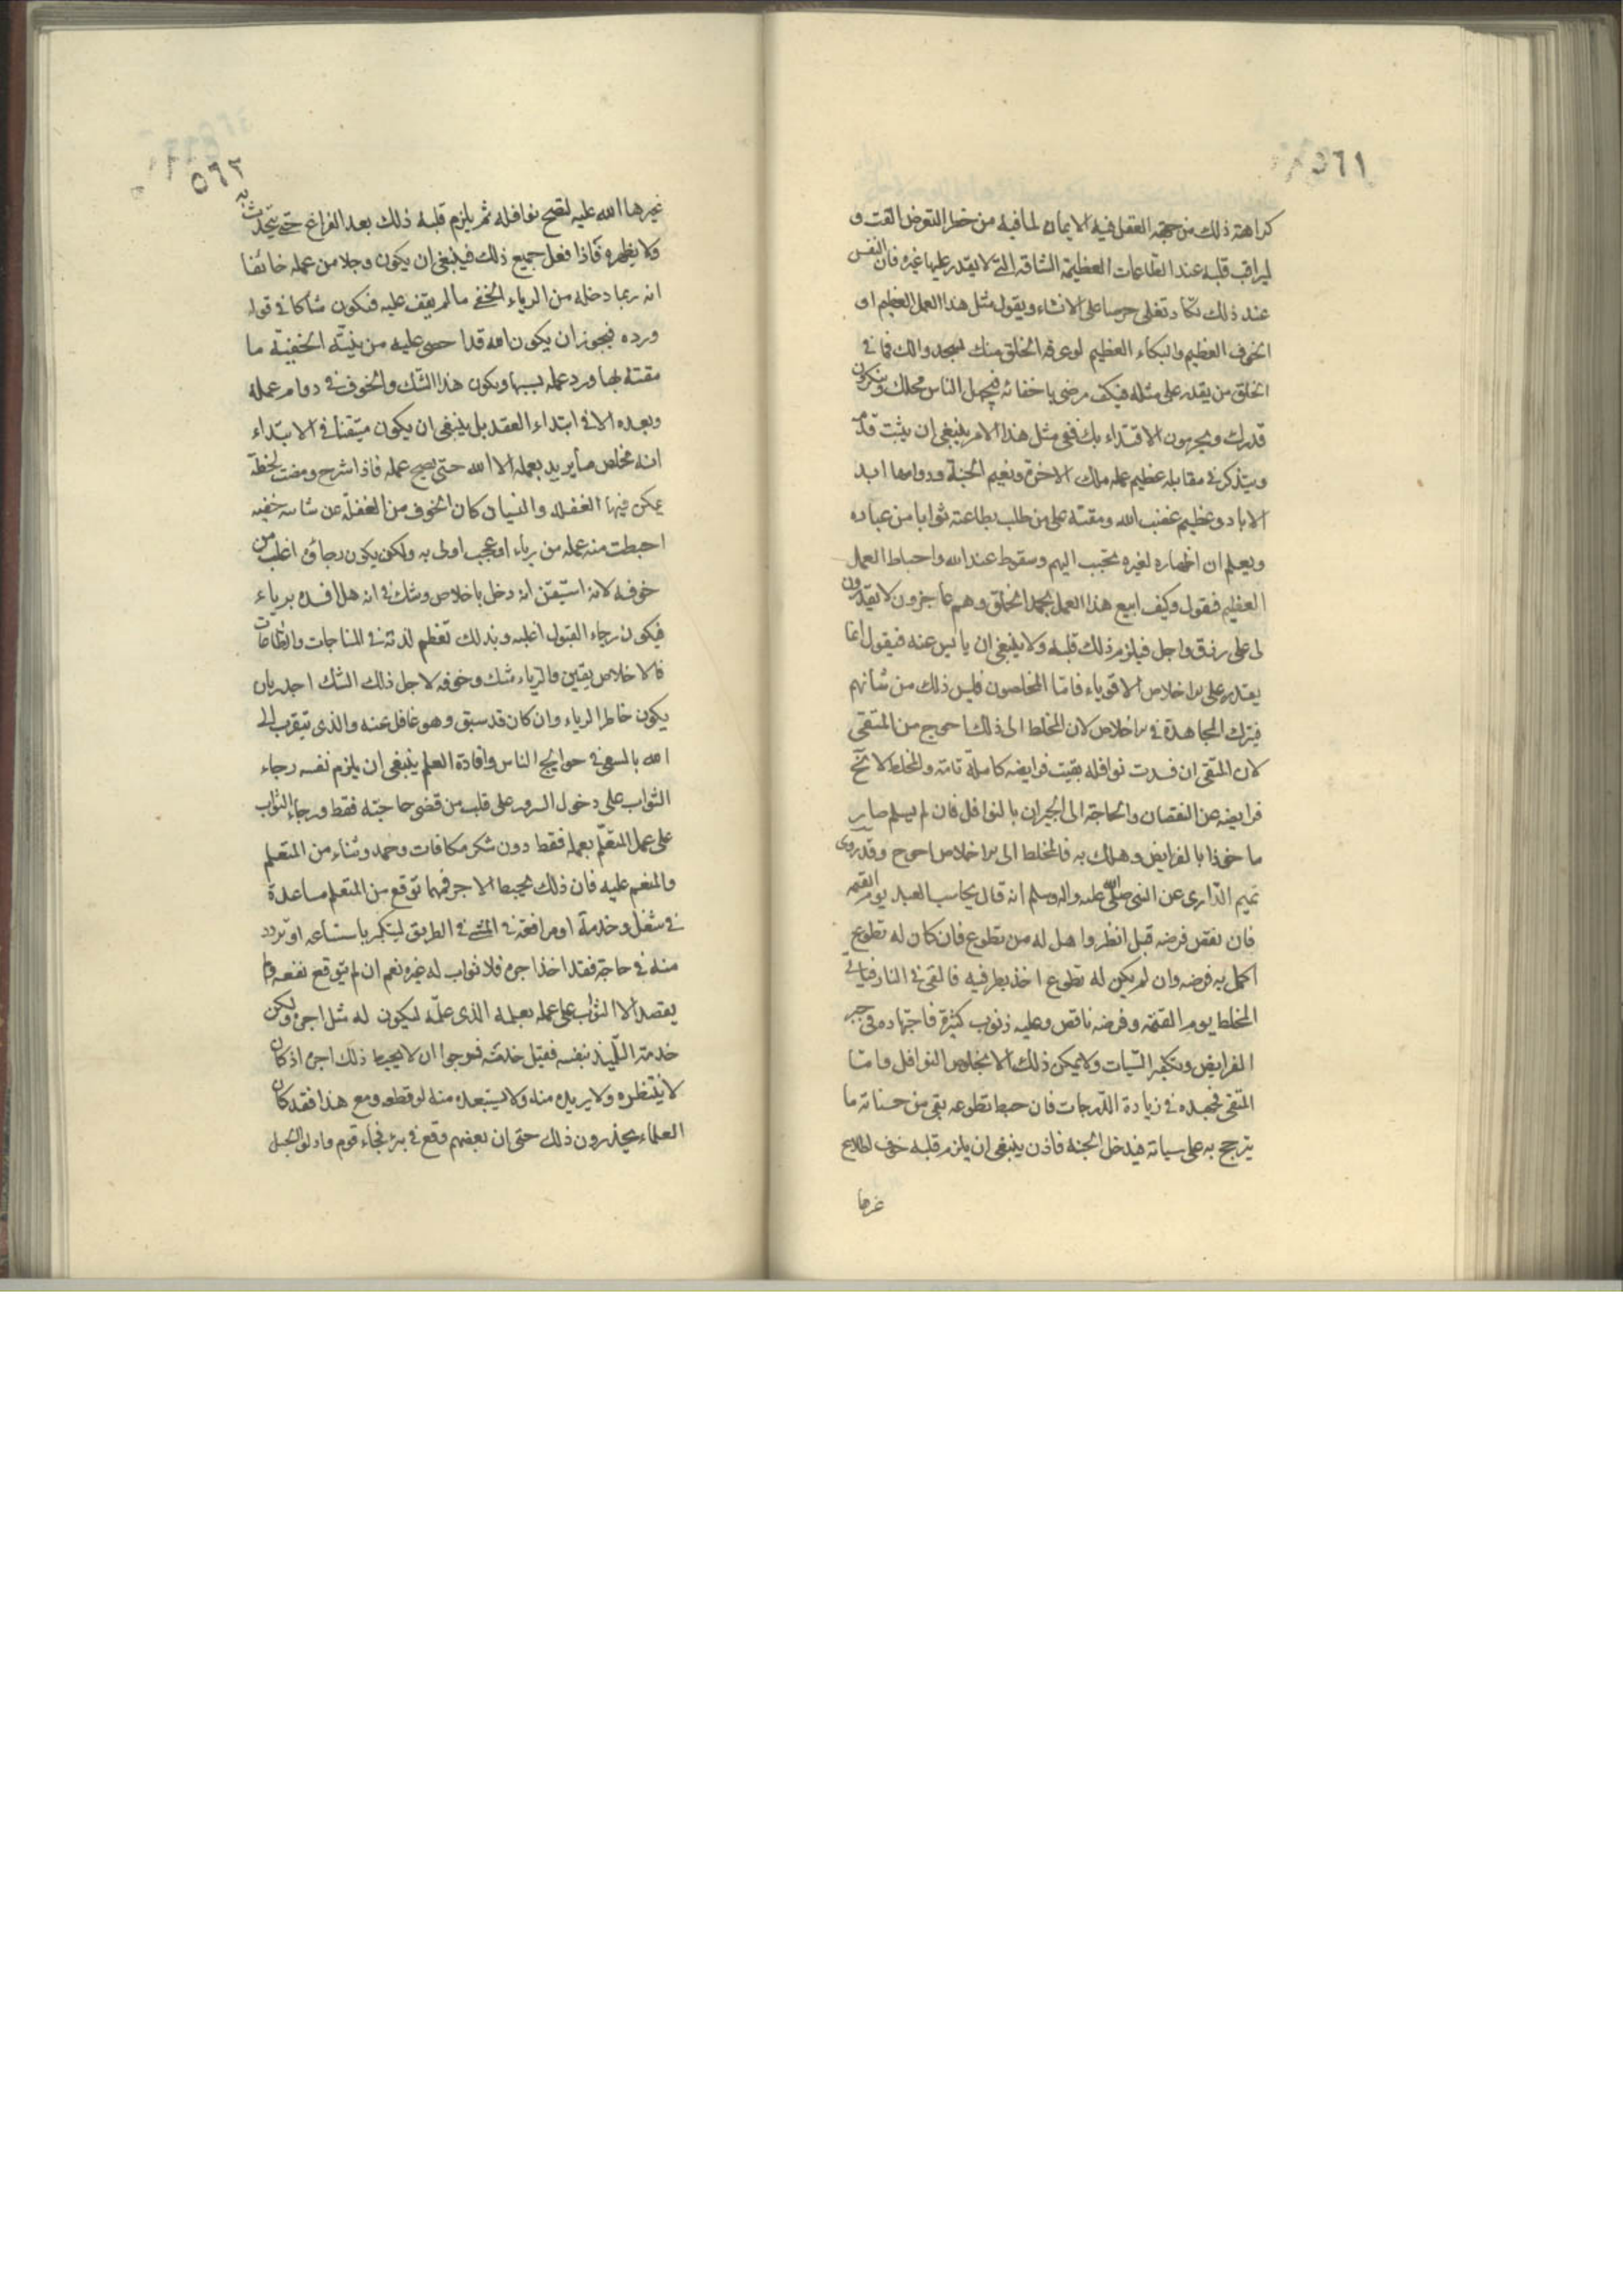 ٥٦١
كراهته ذلك من جهة العقل فيه الايمان لما فيه من خطر التعرض المقت و
ليراقب قلبه عند الطاعات العظيمة الشاقه التي لا يقدر عليها غيره فان النفس
عند ذلك تكاد تغلى حرصا على الافشاء ويقول مثل هذا العمل العظيم او
الخوف العظيم والبكاء العظيم لو عرفه الخلق منك لسجدوا لك فما في
الخلق من يقدر على مثله فكيف ترضى باخفائه فيجهل الناس محلك وينكرون
قدرك ويحرمون الاقتداء بك ففي مثل هذا الامر ينبغي ان يثبت قدمه
ويتذكر في مقابلة عظيم عمله ملك الاخرة ونعيم الجنة ودوامها ابد
الاباد وعظيم غضب الله ومقته على من طلب بطاعته ثوابا من عباده
ويعلم ان اظهاره لغيره تحبب اليهم وسقوط عند الله واحباط العمل
العظيم فيقول وكيف ابيع هذا العمل بحمد الخلق وهم عاجزون لا يقدرون
لى على رزق واجل فيلزم ذلك قلبه ولا ينبغي ان يايس عنه فيقول انما
يقدر على الاخلاص الاقوياء فاما المخلصون فليس ذلك من شأنهم
فيترك المجاهدة في الاخلاص لان المخلط الى ذلك احوج من المتقى
لان المتقى ان فسدت نوافله بقيت فرايضه كاملة تامة والمخلط لا تخ
فرايضه عن النقصان والحاجة الى الجبران بالنوافل فان لم يسلم صار
ماخوذا بالفرايض وهلك به فالمخلط الى الاخلاص احوج وقد روى
تميم الدارى عن النبى صلى الله عليه واله وسلم انه قال يحاسب العبد يوم القيمة
فان نقص فرضه قيل انظروا هل له من تطوع فان كان له تطوع
اكمل به فرضه وان لم يكن له تطوع اخذ بطرفيه فالقى في النار فياتي
المخلط يوم القيمة وفرضه ناقص وعليه ذنوب كثيرة فاجتهاده في جبر
الفرايض وتكفير السيات ولا يمكن ذلك الا بخلوص النوافل واما
المتقى فجهده في زيادة الدرجات فان حبط تطوعه بقى من حسناته ما
يترجح به على سياته فيدخل الجنة فاذن ينبغي ان يلزم قلبه خوف اطلاع
غيرها
٥٦٢
غيرها الله عليه لتصح نوافله ثم يلزم قلبه ذلك بعد الفراغ حتى يتحدث به
ولا يظهره فاذا فعل جميع ذلك فينبغي ان يكون وجلا من عمله خائفا
انه ربما دخله من الرياء الخفى ما لم يقف عليه فيكون شاكا في قوله
ورده فيجوز ان يكون الله قد احصى عليه من نيته الخفية ما
مقته بها ورد عمله بسببها ويكون هذا الشك والخوف في دوام عمله
وبعده الا في ابتداء العقد بل ينبغي ان يكون متيقنا في الابتداء
انه مخلص ما يريد بعمله الا الله حتى يصح عمله فاذا شرح ومضت لحظة
يمكن فيها الغفلة والنسيان كان الخوف من الغفلة عن شائبه خفيه
احبطت منه عمله من رياء او عجب اولى به ولكن يكون رجاؤه اغلب من
خوفه لانه استيقن انه دخل باخلاص وشك في انه هل افسده برياء
فيكون رجاء القبول اغلب وبذلك تعظم لذته في المناجات والطاعات
فالاخلاص يقين والرياء شك وخوفه لاجل ذلك الشك اجدر بان
يكون خاطر الرياء وان كان قد سبق وهو غافل عنه والذى يتقرب الى
الله بالسعى في حوايج الناس وافادة العلم ينبغى ان يلزم نفسه رجاء
الثواب على دخول السرور على قلب من قضى حاجته فقط ورجاء الثواب
على عمل المتعلم بعمله فقط دون شكر مكافات وحمد وثناء من المتعلم
والمنعم عليه فان ذلك يحبط الاجر فمهما توقع من المتعلم مساعدة
في شغل وخدمة او مرافقة في المشى في الطريق ليتكبر باستتباعه او تردد
منه في حاجة فقد اخذ اجره فلا ثواب له غيره نعم ان لم يتوقع نفعه ولم
يقصد الا الثواب على عمله بعلمه الذى علمه ليكون له مثل اجره ولكن
خدمة التلميذ بنفسه فقبل خدمته فنرجوا ان لا يحبط ذلك اجره اذ كان
لا ينتظره ولا يريده منه ولا يستبعده منه لو قطعه ومع هذا فقد كان
العلماء يحذرون ذلك حتى ان بعضهم وقع في بئر فجاء قوم وادلو الحبل